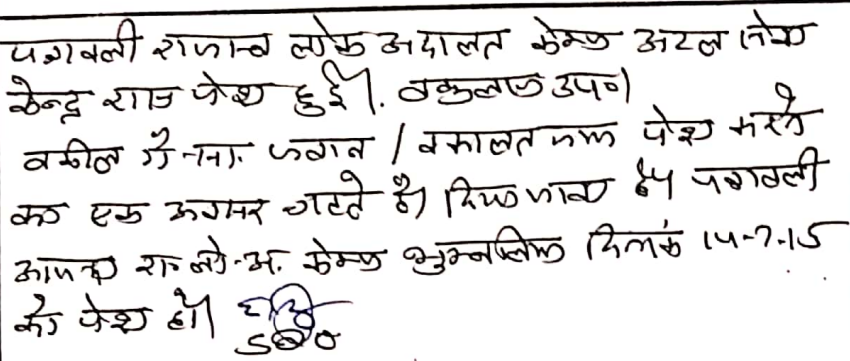 पत्रावली राजस्व लोक अदालत केम्प अटल सेवा
केन्द्र राम पेश हुई। वकुलाय उप०
वकील गै-सा. जवाब / वकालतनामा पेश करने
का एक अवसर चाहते है। दिया जावे पत्रावली
आगामी रा-लो-अ. केम्प दिनांक 14-7-15
को पेश हो।
SDO